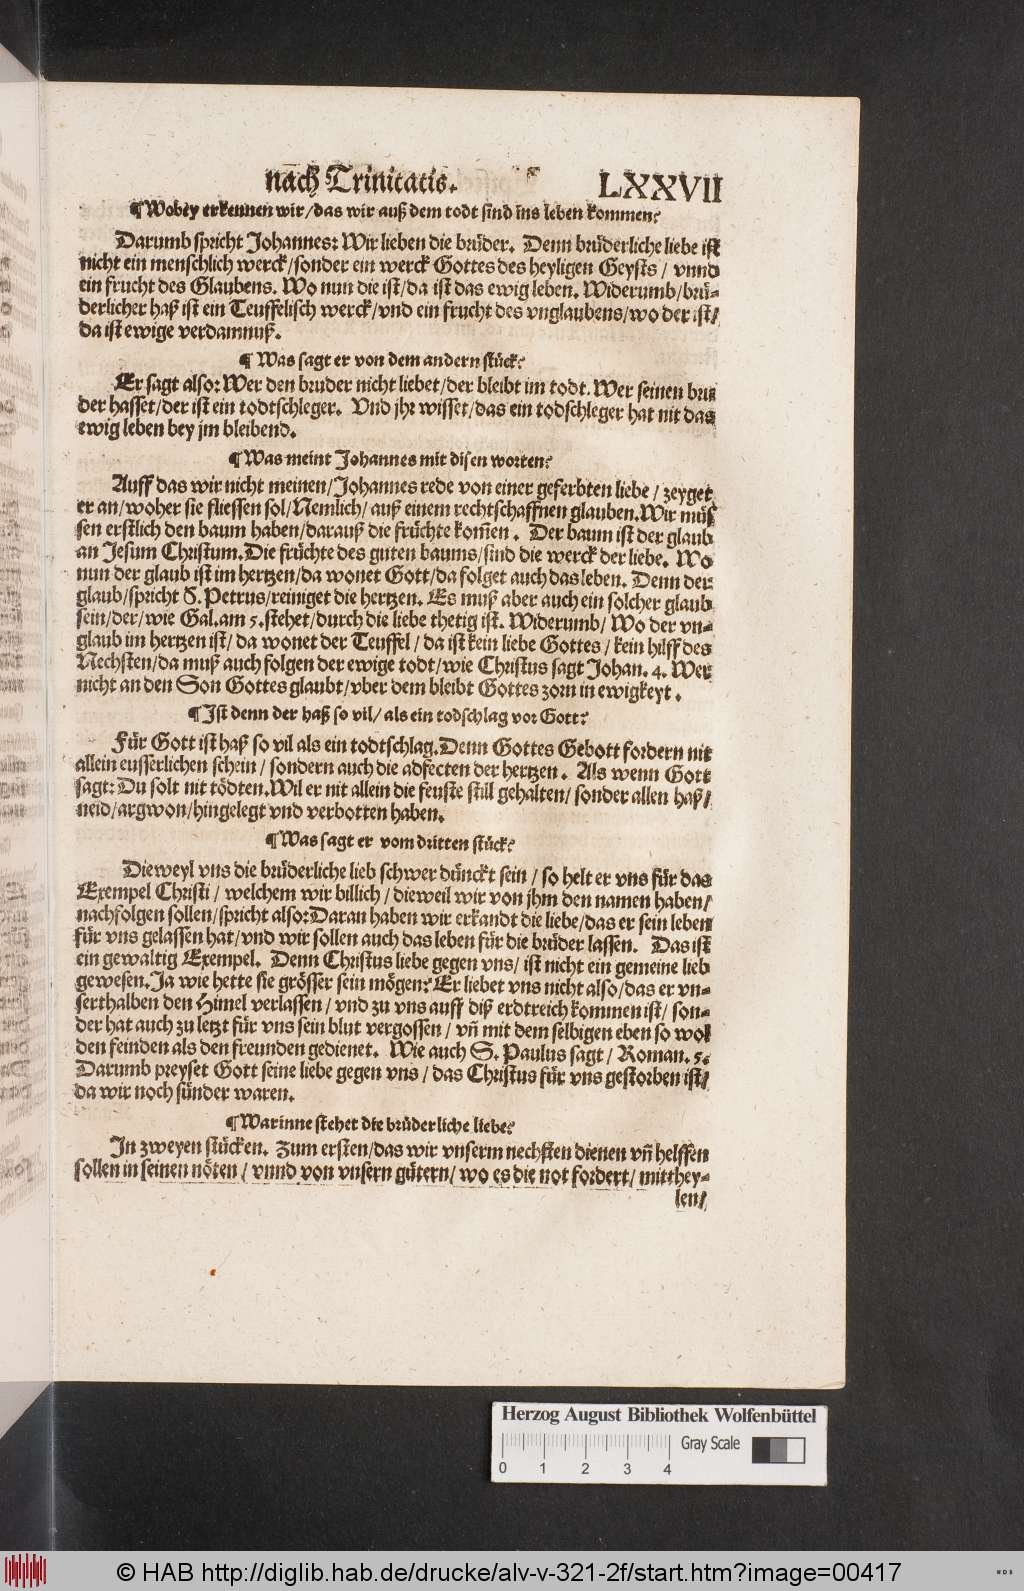 nach Trinitatis. LXXVII
¶ Wobey erkennen wir/das wir auß dem todt sind ins leben kommen?
Darumb spricht Johannes: Wir lieben die brüder. Denn brüderliche liebe ist
nicht ein menschlich werck/sonder ein werck Gottes des heyligen Geysts/ vnnd
ein frucht des Glaubens. Wo nun die ist/da ist das ewig leben. Widerumb/brü-
derlicher haß ist ein Teuffelisch werck/vnd ein frucht des vnglaubens/wo der ist/
da ist ewige verdamnuß.
¶ Was sagt er von dem andern stück?
Er sagt also: Wer den bruder nicht liebet/der bleibt im todt. Wer seinen bru
der hasset/der ist ein todtschleger. Vnd jhr wisset/das ein todschleger hat nit das
ewig leben bey jm bleibend.
¶ Was meint Johannes mit disen worten?
Auff das wir nicht meinen/Johannes rede von einer geferbten liebe/ zeyget
er an/woher sie fliessen sol/Nemlich/ auß einem rechtschaffnen glauben. Wir müs
sen erstlich den baum haben/darauß die früchte kom̃en. Der baum ist der glaub
an Jesum Christum. Die früchte des guten baums/sind die werck der liebe. Wo
nun der glaub ist im hertzen/da wonet Gott/da folget auch das leben. Denn der
glaub/spricht S. Petrus/reiniget die hertzen. Es muß aber auch ein solcher glaub
sein/der/wie Gal.am 5.stehet/durch die liebe thetig ist. Widerumb/ Wo der vn-
glaub im hertzen ist/ da wonet der Teuffel/ da ist kein liebe Gottes/ kein hilff des
Nechsten/da muß auch folgen der ewige todt/wie Christus sagt Johan. 4. Wer
nicht an den Son Gottes glaubt/vber dem bleibt Gottes zorn in ewigkeyt.
¶ Ist denn der haß so vil/ als ein todschlag vor Gott?
Für Gott ist haß so vil als ein todtschlag. Denn Gottes Gebott fordern nit
allein eusserlichen schein/ sondern auch die adfecten der hertzen. Als wenn Gott
sagt: Du solt nit tödten. Wil er nit allein die feuste still gehalten/ sonder allen haß/
neid/argwon/hingelegt vnd verbotten haben.
¶ Was sagt er vom dritten stück?
Dieweyl vns die brüderliche lieb schwer dünckt sein/ so helt er vns für das
Exempel Christi/ welchem wir billich/ dieweil wir von jhm den namen haben/
nachfolgen sollen/spricht also: Daran haben wir erkandt die liebe/das er sein leben
für vns gelassen hat/vnd wir sollen auch das leben für die brüder lassen. Das ist
ein gewaltig Exempel. Denn Christus liebe gegen vns/ ist nicht ein gemeine lieb
gewesen. Ja wie hette sie grösser sein mögen? Er liebet vns nicht also/das er vn-
serthalben den Himel verlassen/ vnd zu vns auff diß erdtreich kommen ist/ son-
der hat auch zu letzt für vns sein blut vergossen/ vñ mit dem selbigen eben so wol
den feinden als den freunden gedienet. Wie auch S. Paulus sagt/ Roman. 5.
Darumb preyset Gott seine liebe gegen vns/ das Christus für vns gestorben ist/
da wir noch sünder waren.
¶ Warinne stehet die brüderliche liebe?
In zweyen stücken. Zum ersten/das wir vnserm nechsten dienen vñ helffen
sollen in seinen nöten/ vnnd von vnsern gütern/ wo es die not fordert/ mitthey-
len/
Herzog August Bibliothek Wolfenbüttel
Gray Scale
0 1 2 3 4
© HAB http://diglib.hab.de/drucke/alv-v-321-2f/start.htm?image=00417